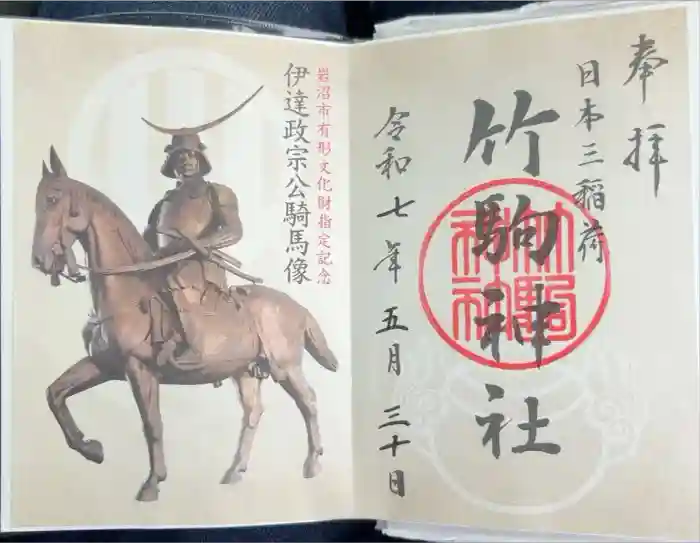 奉拝
日本三稲荷
竹駒神社
竹駒
神社
令和七年五月三十日
岩沼市有形文化財指定記念
伊達政宗公騎馬像